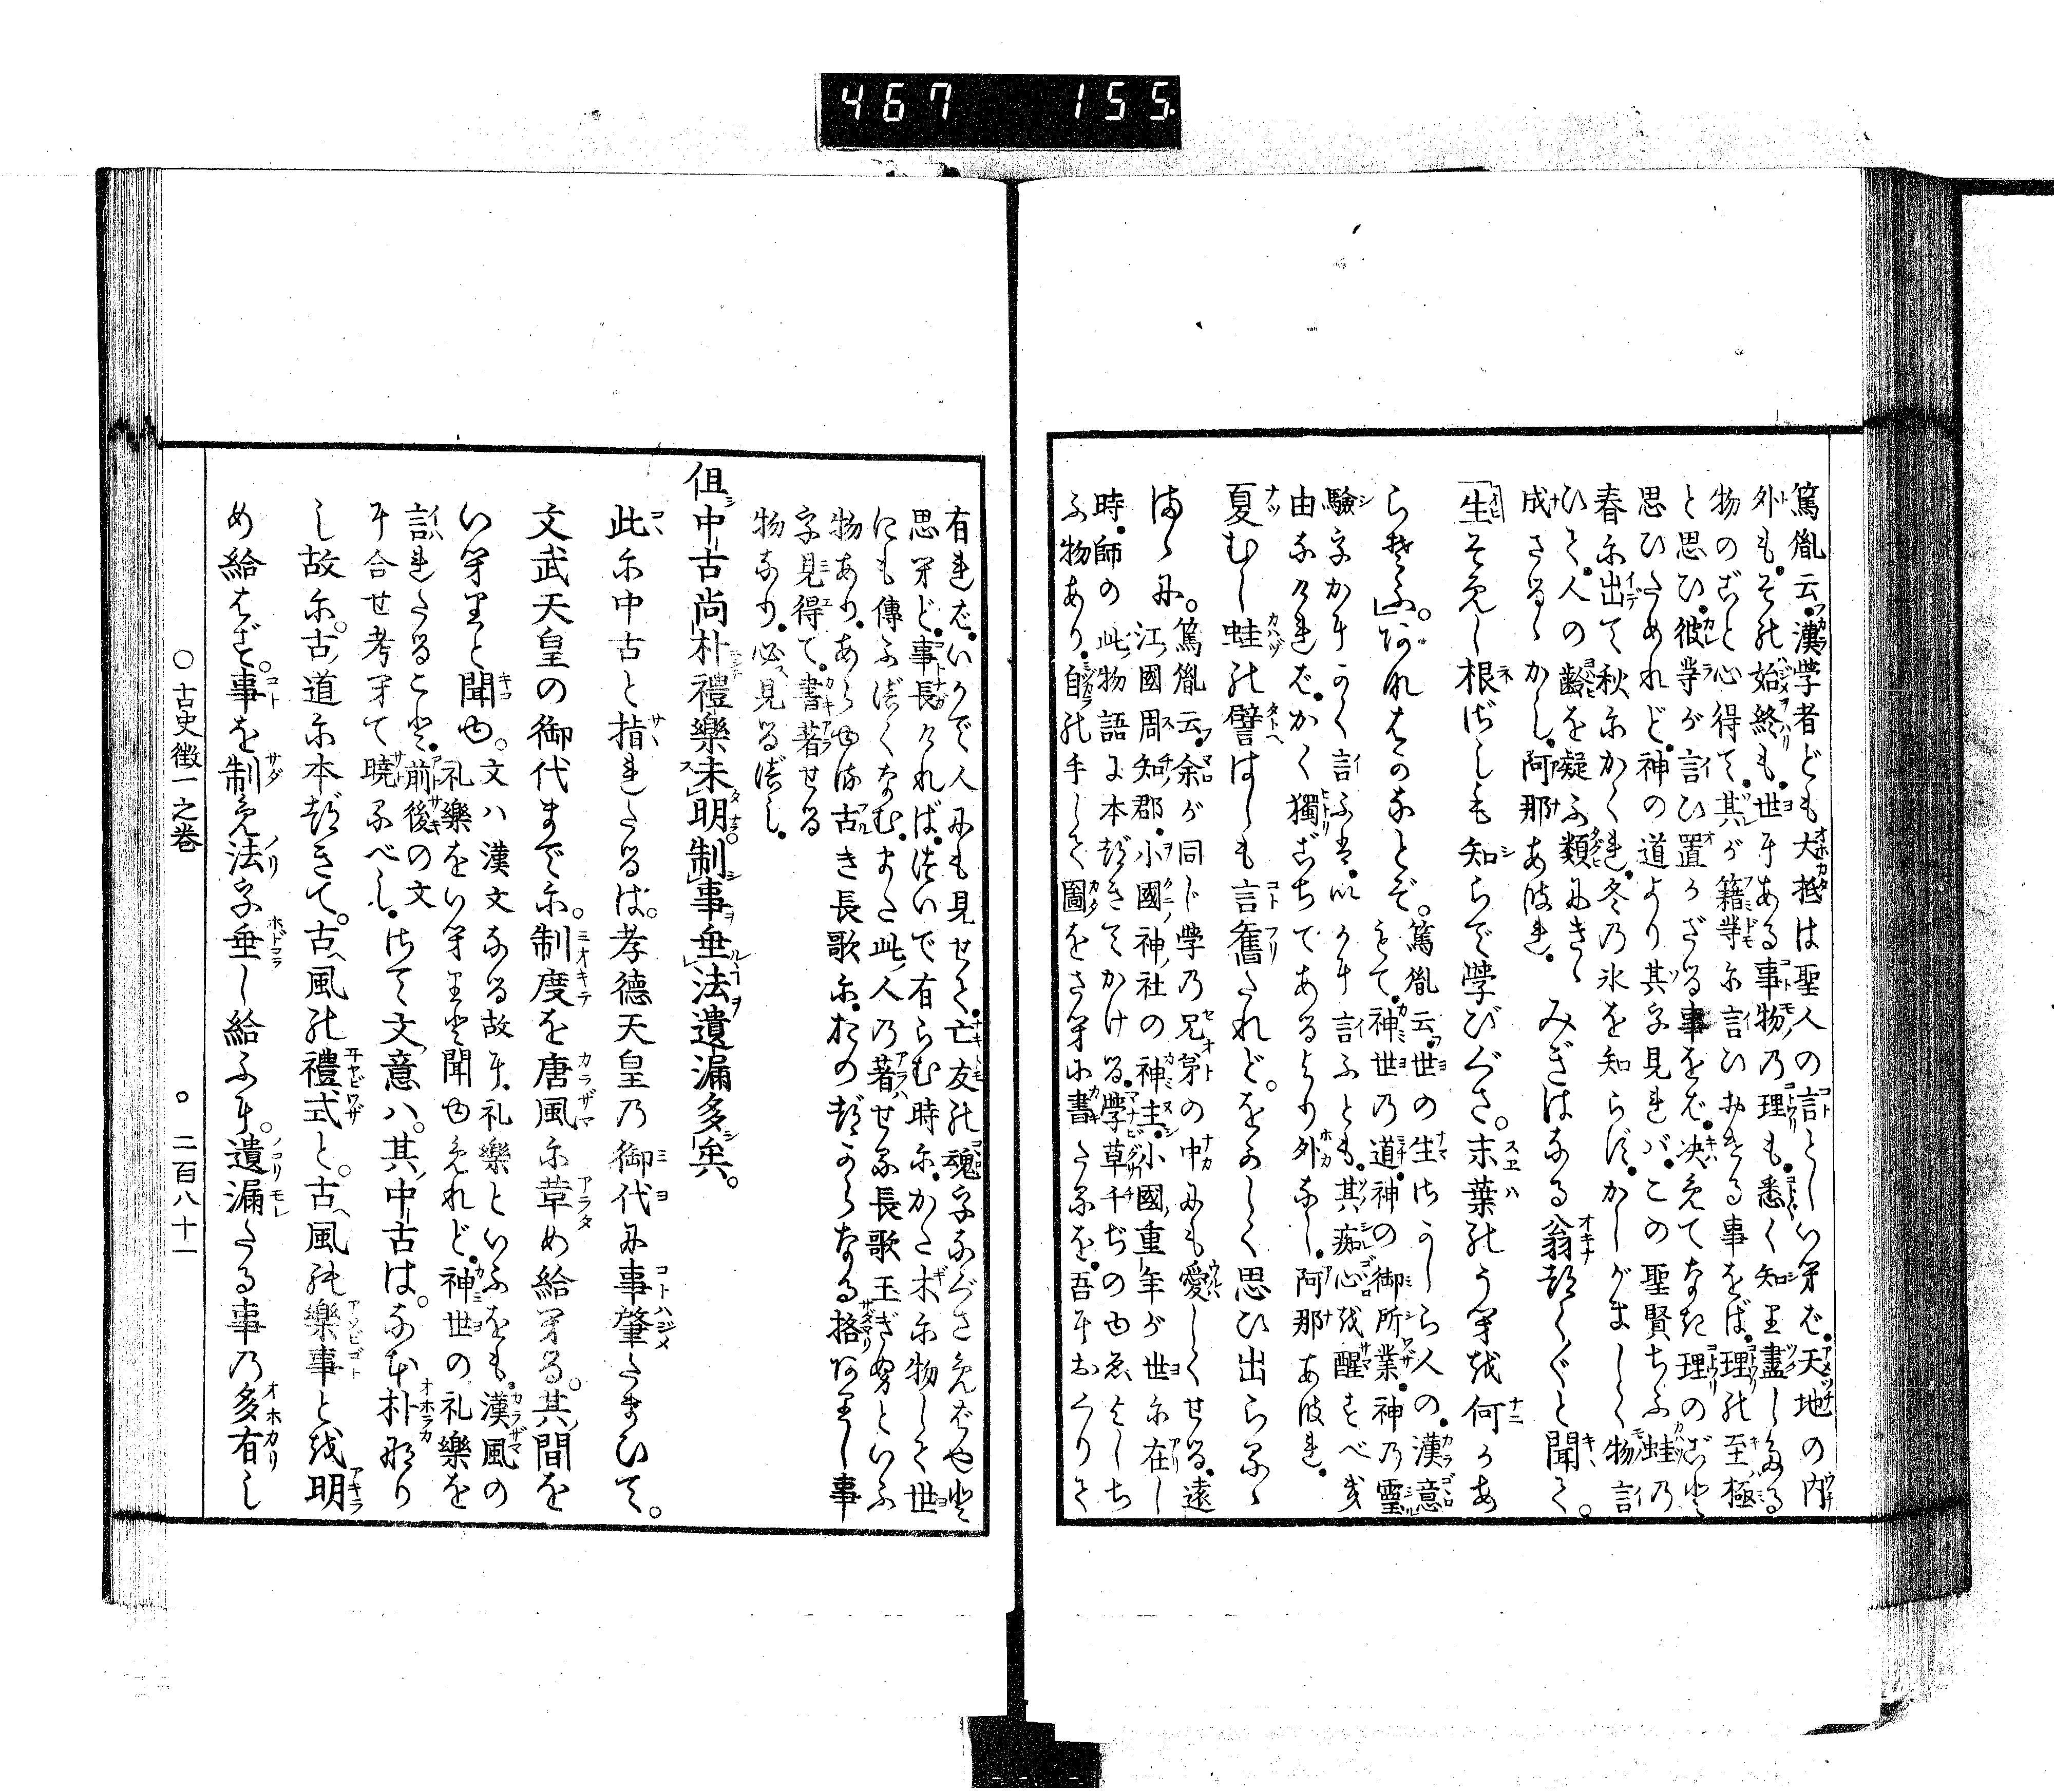 467 155
篤胤云。漢學者ども大抵は聖人の言としいへば。天地の内
外も。その始終も。世にある事物の理も。悉く知り盡したる
物のごと心得て。其が籍等に言ひおける事をば。理の至極
と思ひ。彼等が言ひ置かざる事をば。决めてなき理のごと
思ひためれど。神の道より其を見れバ。この聖賢ちふ蛙の
春に出て秋にかくれ。冬の氷を知らず。かしがましく物言
ひて。人の齡を疑ふ類にきゝ みぎはなる翁
成さるゝかし。阿那あはれ。 ぐと聞きて。
生そめし根ざしも知らで學びぐさ。末葉のうへを何かあ
らそふ。 はのなとぞ。篤胤云。世の生さかしら人の。漢意
もて。神世の道。神の御所業。神の靈
驗をかにかく言ふは。 かに言ふとも。其痴心を醒すべき
由なければ。かく獨ごちてあるより外なし。阿那あはれ。
夏むし蛙の譬はしも言舊たれど。をかしく思ひ出らるゝ
まゝに。篤胤云。余が同じ學の兄弟の中にも愛しくせる。遠
江國周知郡。小國神社の神主。小國重年が世に在し
時。師の此物語に本づきてかける。學草千ぢのゆゑよしち
ふ物あり。自の手して圖をさへに書たるを。吾におくりて
有れば。いかで人にも見せて。亡友の魂をなぐさめばやと
思へど。事長ければ。ついで有らむ時に。かた木に物して世
にも傳ふべくなむ。また此人の著せる長歌玉ぎぬといふ
物あり。あらゆる古き長歌に。おのづからなる格ありし事
を見得て。書著せる
物なり。必見るべし。
但中古尚朴禮樂未明。制事垂法遺漏多矣。
此に中古と指れたるは。孝德天皇の御代に事肇たまひて。
文武天皇の御代までに。制度を唐風に革め給へる。其間を
いへりと聞ゆ。文ハ漢文なる故に。礼樂といふをも。漢風の
礼樂をいへりと聞ゆめれど。神世の礼樂を
言れたること。前後の文
に合せ考へて曉るべし。さて文意ハ。其中古は。なほ朴なり
し故に。古道に本づきて。古風の禮式と。古風の樂事とを明
め給はず。事を制め法を垂し給ふに。遺漏たる事の多有し
〇古史徵一之卷 〇二百八十一